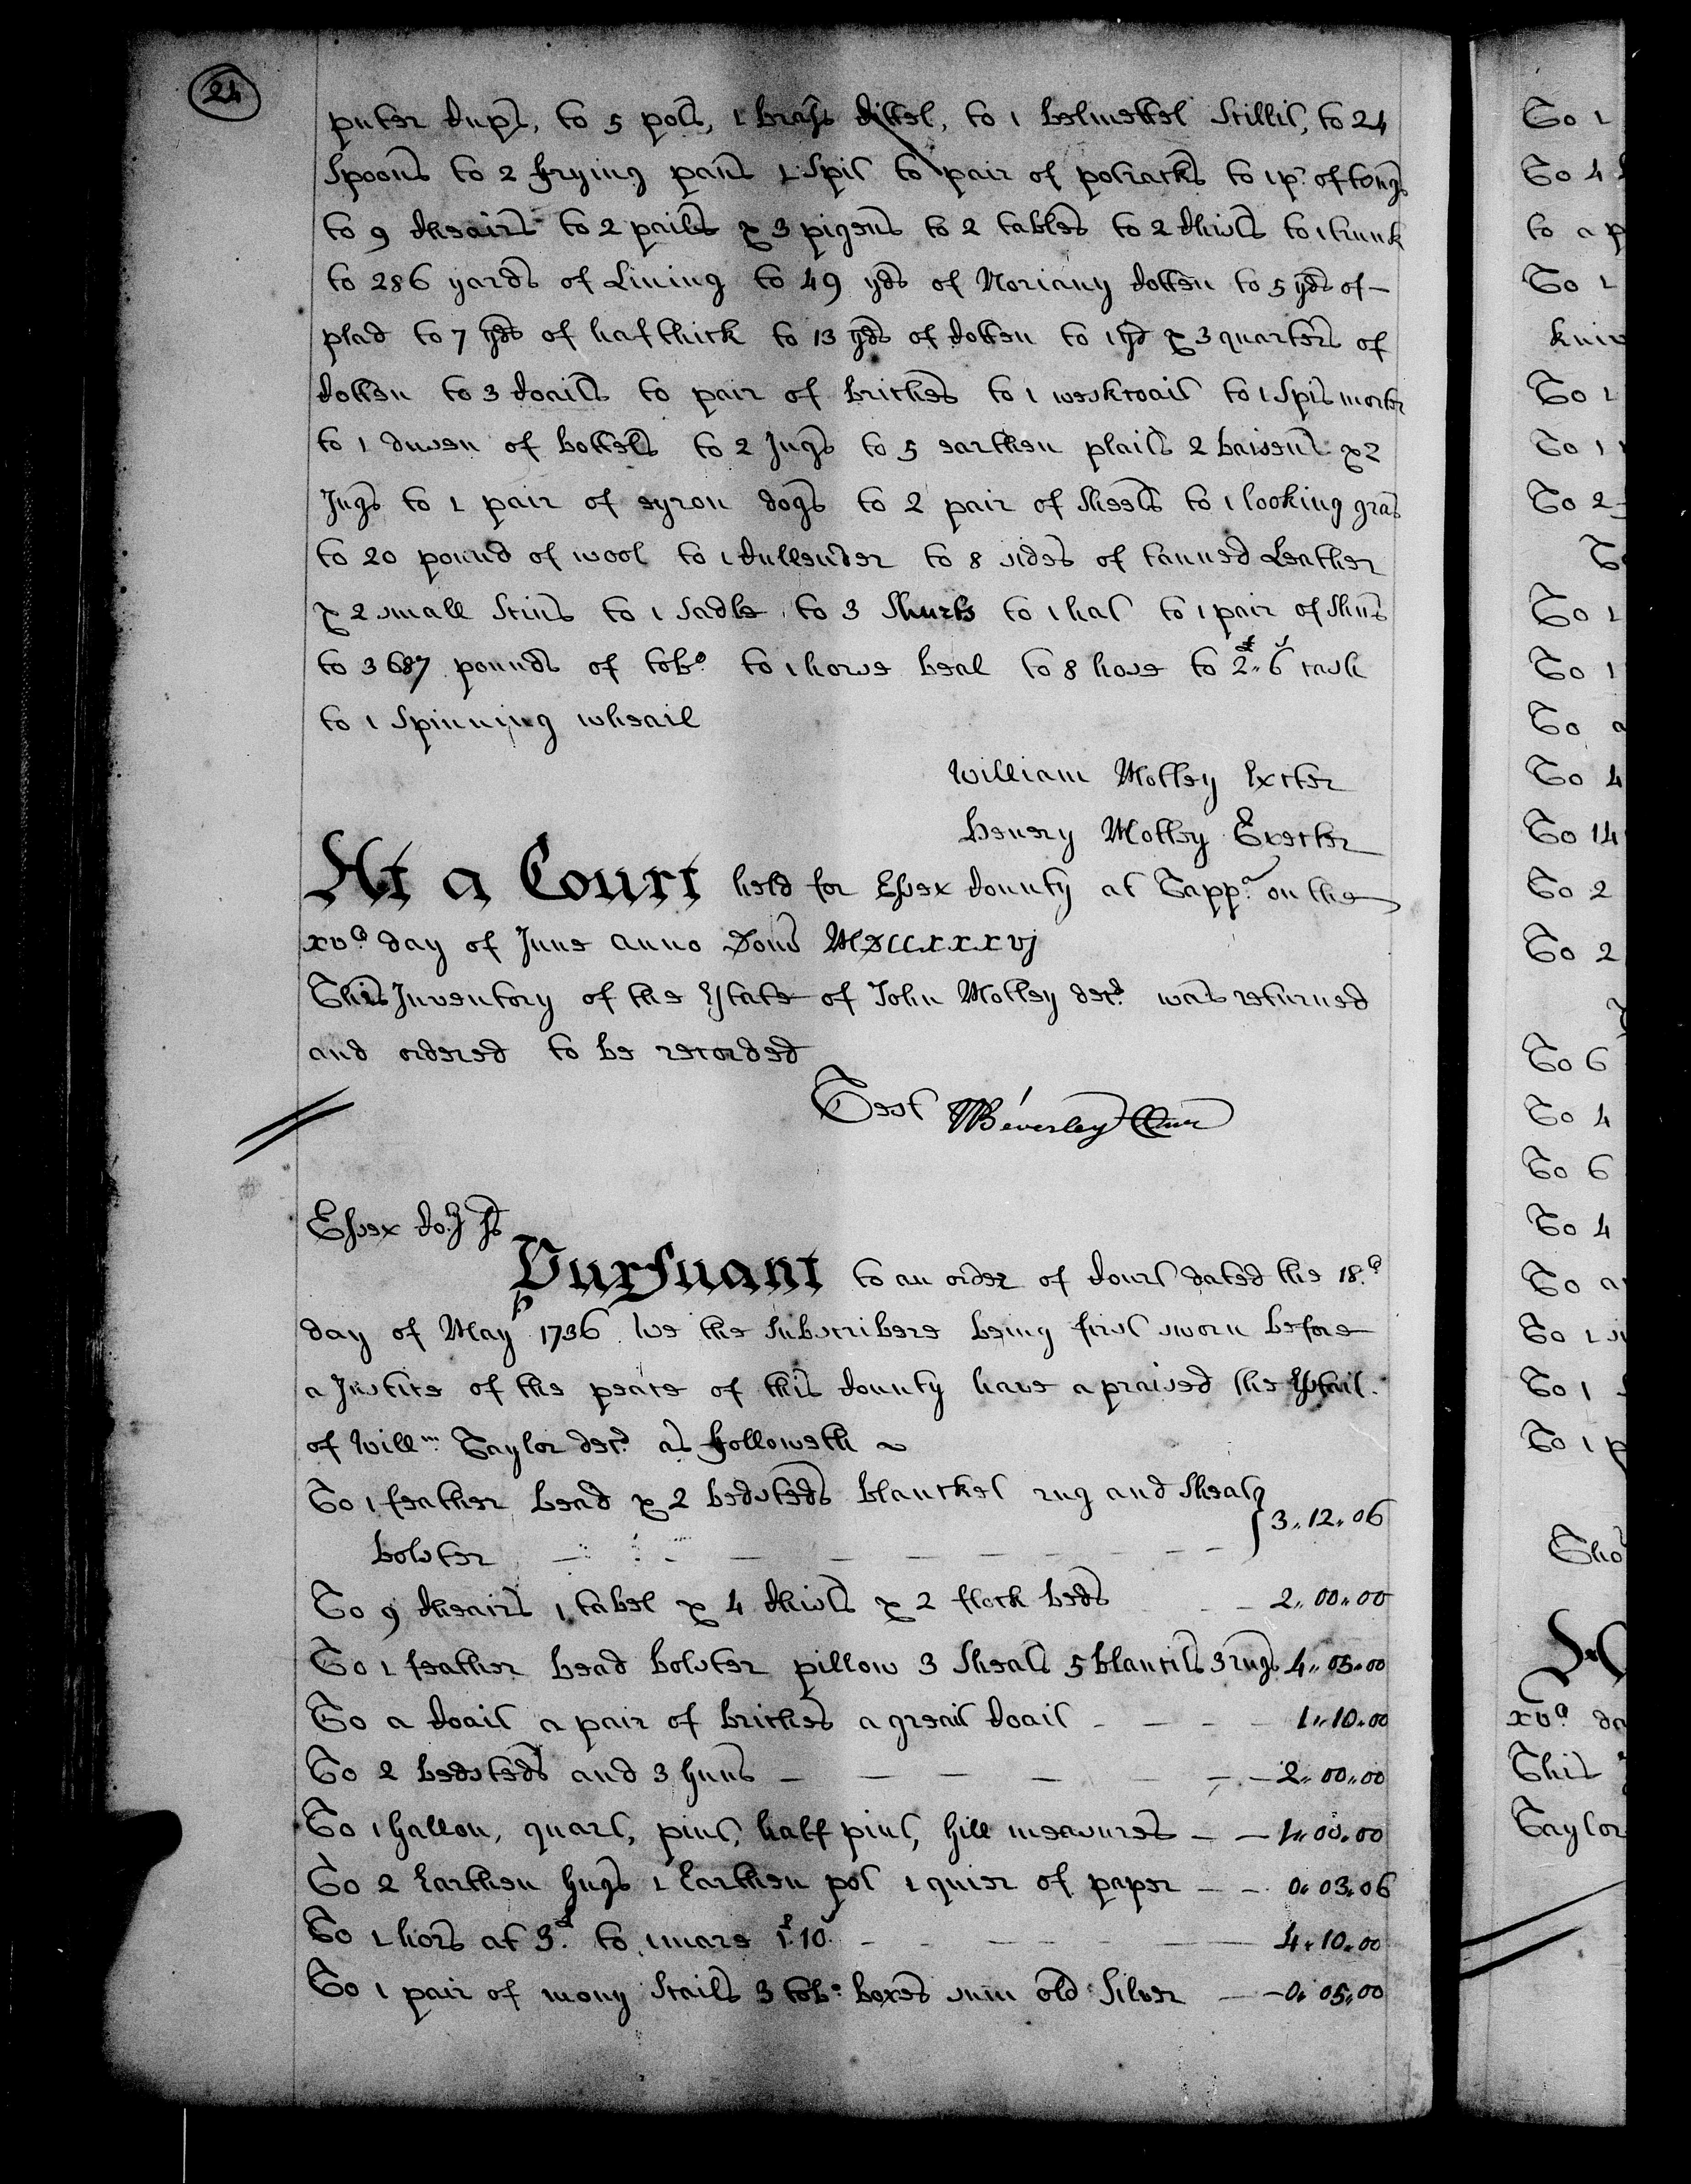 24
puter Cups, to 5 pots, 1 brass Citel, to 1 belmettel Scillit, to 24
Spoons to 2 frying pans 1 Spit to pair of potracks to 1 pr. of tongs
to 9 Cheairs to 2 pails & 3 pigens to 2 tables to 2 Chists to 1 trunk
to 286 yards of Lining to 49 yds of Noriany Cotten to 5 yds of -
plad to 7 yds of hafthick to 13 yds of Cotten to 1 yd & 3 quarters of
Cotten to 3 Coaits to pair of Britches to 1 weskcoait to 1 Spis morter
to 1 Dusen of bottels to 2 Jugs to 5 earthen plaits 2 baisens & 2
Jugs to 1 pair of eyron dogs to 2 pair of Sheets to 1 looking gras
to 20 pound of wool to 1 Cullender to 8 sides of tanned Leather
& 2 small Scins to 1 Sadle to 3 Shurts to 1 hat to 1 pair of Shus
to 3687 pounds of tobo to 1 horse beal to 8 hose to 2£,, 6s cash
to 1 Spinning wheail
William Motley Excter
Henery Motley Execter
At a Court held for Essex County at Tappa on the
xvth day of June Anno Domi MDCCXXXVJ
This Inventory of the Estate of John Motley decd. was returned
and ordered to be recorded
Test WBeverley Cur
Essex Coty ss
Pursuant to an order of Court dated the 18.th
day of May 1736 We the Subscribers being first sworn before
a Justice of the peace of this County have apraised the Estait
of Willm. Taylor decd. as followeth ~
To 1 feather bead & 2 bedsteds blancket rug and Sheats } 3,, 12,, 06
bolster
To 9 Cheairs 1 tabel & 4 Chists & 2 flock beds 2,, 00,, 00
To 1 feather bead bolster pillow 3 Sheats 5 blancits 3 rugs 4,, 05,, 00
To a Coait a pair of britches a greait Coait 1,, 10,, 00
To 2 bedsteds and 3 Guns 2,, 00,, 00
To 1 Gallon, quart, pint, half pint, Gill measures 1,, 00,, 00
To 2 Earthen Jugs 1 Earthen pot 1 quier of paper 0,, 03,, 06
To 1 hors at 3£. to 1 mare 1£.10s 4,, 10,, 00
To 1 pair of mony Scails 3 tobo: boxes sum old Silver 0,, 05,, 00
To 1
To 4
to a p
To 1
kniv
To 1
To 1
To 2
To 1
To 1
To a
To 4
To 14
To 2
To 2
To 6
To 4
To 6
To 4
To a
To 1
To 1
To 1 p
xvth da
This
Taylor